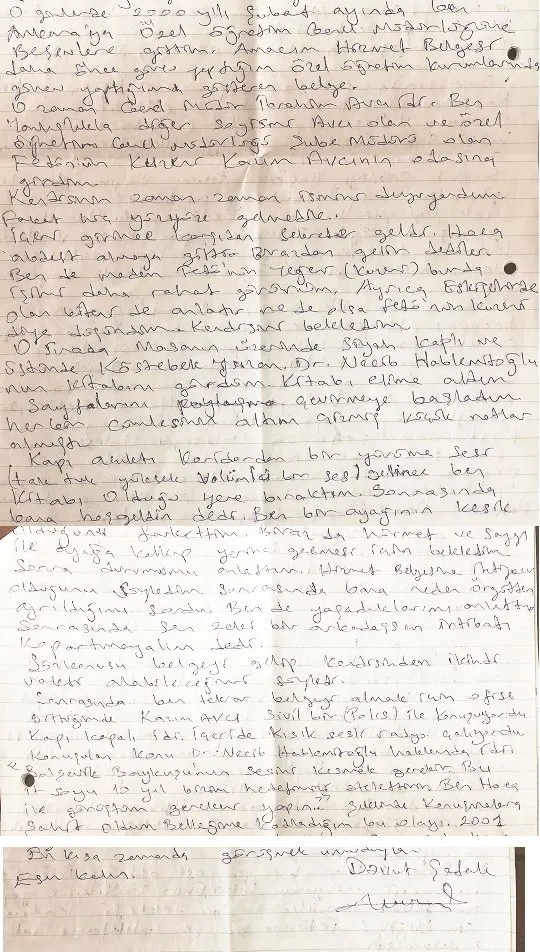 O günlerde 2000 yılı Şubat ayında ben
Ankara'ya Özel Öğretim Genel Müdürlüğüne
Beşevlere gittim. Amacım Hizmet Belgesi
daha önce görev yaptığım özel öğretim kurumlarında
görev yaptığımı gösteren belge.
O zaman Genel Müdür İbrahim Avcı idi. Ben
diğer soyismi Avcı olan ve özel
Öğretim Genel müdürlüğü Şube Müdürü olan
Fetönün Kuzeni Kazım Avcının odasına
girdim.
Kendisinin zaman zaman ismini duyuyordum
fakat hiç yüzyüze gelmedik.
İçeri girince karşıdan sekreter geldi. Hoca
abdest almaya gitti Birazdan gelir dediler
Ben de madem Fetö'nin yeğeni (kuzeni) burda
işimi daha rahat görürüm, Ayrıca Eskişehirde
olan biteni de anlatır ne de olsa fetö'nin kuzeni
diye düşündüm. Kendisini bekledim.
O sırada Masanın üzerinde siyah kaplı ve
üstünde Köstebek yazan. Dr. Necib Hablemitoğlu
nun kitabını gördüm. Kitabı elime aldım
Sayfalarını çevirmeye başladım
hemen cümlesinin altını çizmiş küçük notlar
almıştı
Kapı açıktı Koridordan bir yürüme sesi
(tak tuk yüksek bir ses) gelince ben
Kitabı olduğu yere bıraktım. Sonrasında
bana hoşgeldin dedi. Ben bir ayağının kesik
olduğunu farkettim. Biraz da hürmet ve saygı
ile ayağa kalkıp yerine geçmesi için bekledim
Sonra durumumu anlattım. Hizmet Belgesine ihtiyacım
olduğunu söyledim. Sonrasında bana neden Örgütten
ayrıldığımı sordu. Ben de yaşadıklarımı anlattım
Sonrasında sen zeki bir arkadaşsın irtibatı
Kopartmayalım dedi.
belgeyi gelip kendisinden ikindi
vakti alabileceğimi söyledi.
Sonrasında ben tekrar belgeyi almak için ofise
gittiğimde Kazım Avcı sivil bir (Polis) ile konuşuyordu
Kapı kapalı idi. İçeride kısık sesli radyo çalıyordu
Konuşulan konu Dr. Necib Hablemitoğlu hakkında idi
"Bolşevik Baykuşu'nun sesini kesmek gerekir. Bu
it soyu 10 yıl bizim Ben Hoca
ile görüştüm gerekeni yapınız" şeklinde konuşmalara
Şahit oldum Belleğime kazıdığım bu olayı. 2001
Bu kısa zamanda görüşmek umuduyla.
Esen kalın. Davut